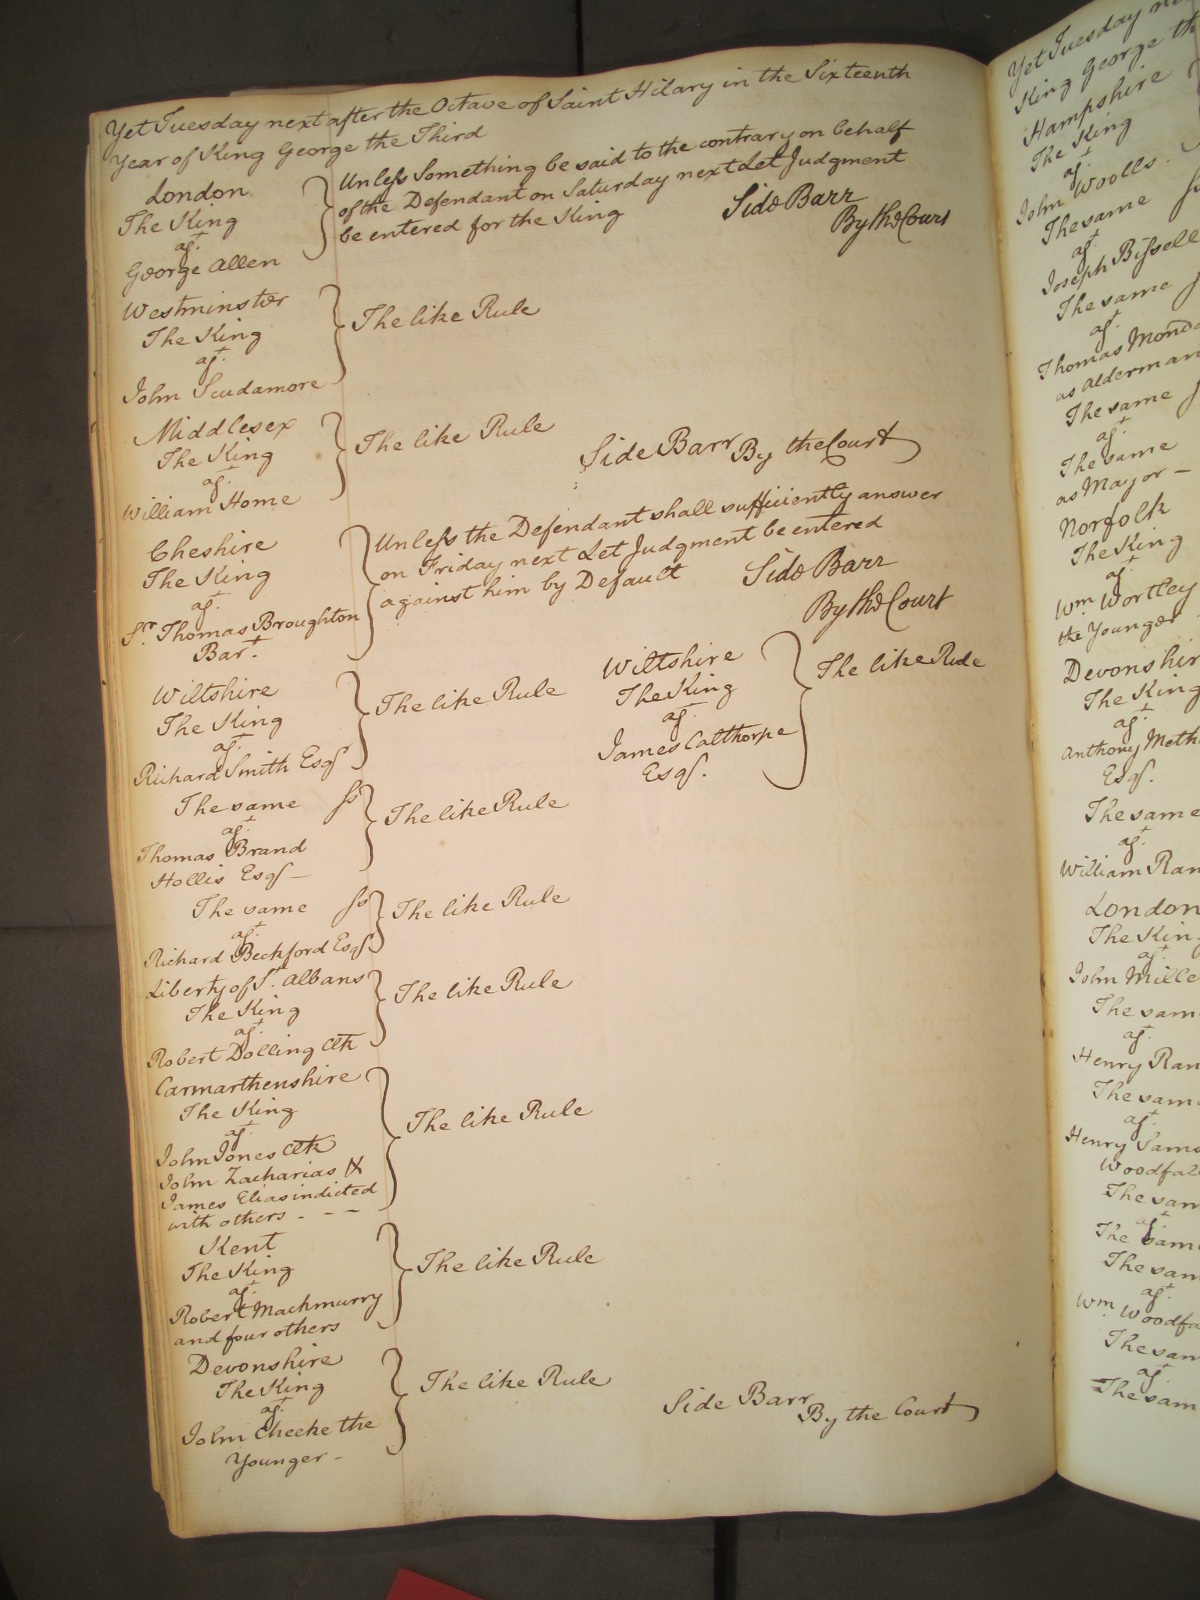 Yet Tuesday next after the Octave of Saint Hilary in the Sixteenth
Year of King George the Third
London
The King
agt.
George Allen
Unless Something be said to the contrary on behalf
of the Defendant on Saturday next Let Judgment
be entered for the King
Side Barr
By the Court
Westminster
The King
agt.
John Scudamore
The like Rule
Middlesex
The King
agt.
William Home
The like Rule
Side Barr By the Court
Cheshire
The King
agt.
Sr. Thomas Broughton
Bart.
Unless the Defendant shall sufficiently answer
on Friday next Let Judgment be entered
against him by Default
Side Barr
By the Court
Wiltshire
The King
agt.
Richard Smith Esqr
The like Rule
Wiltshire
The King
agt.
James Calthorpe
Esqr.
The like Rule
The same ss
agt.
Thomas Brand
Hollis Esqr —
The like Rule
The same ss
agt.
Richard Beckford Esqr
The like Rule
Liberty of St. Albans
The King
agt.
Robert Dolling Clk
The like Rule
Carmarthenshire
The King
agt.
John Jones Clk
John Zacharias &
James Elias indicted
with others - - -
The like Rule
Kent
The King
agt.
Robert Mackmurry
and four others
The like Rule
Devonshire
The King
agt.
John Cheeke the
Younger -
The like Rule
Side Barr
By the Court
Yet Tuesday
King George th
Hampshire
The King
agt.
John Woolls
The same
agt.
Joseph Bissell
The same
agt.
Thomas
as Alderman
The same
agt.
The same
as Mayor —
Norfolk
The King
agt.
Wm Wortley
the Younger
Devonshir
The King
agt.
Anthony Meth
Esqr.
The same
agt.
William Ran
London
The Kin
agt.
John Mille
The sam
agt.
Henry Ran
The sam
agt.
Henry Sam
Woodfal
The sam
agt.
The sam
The sam
agt.
Wm Woodfa
The sam
agt.
The sam